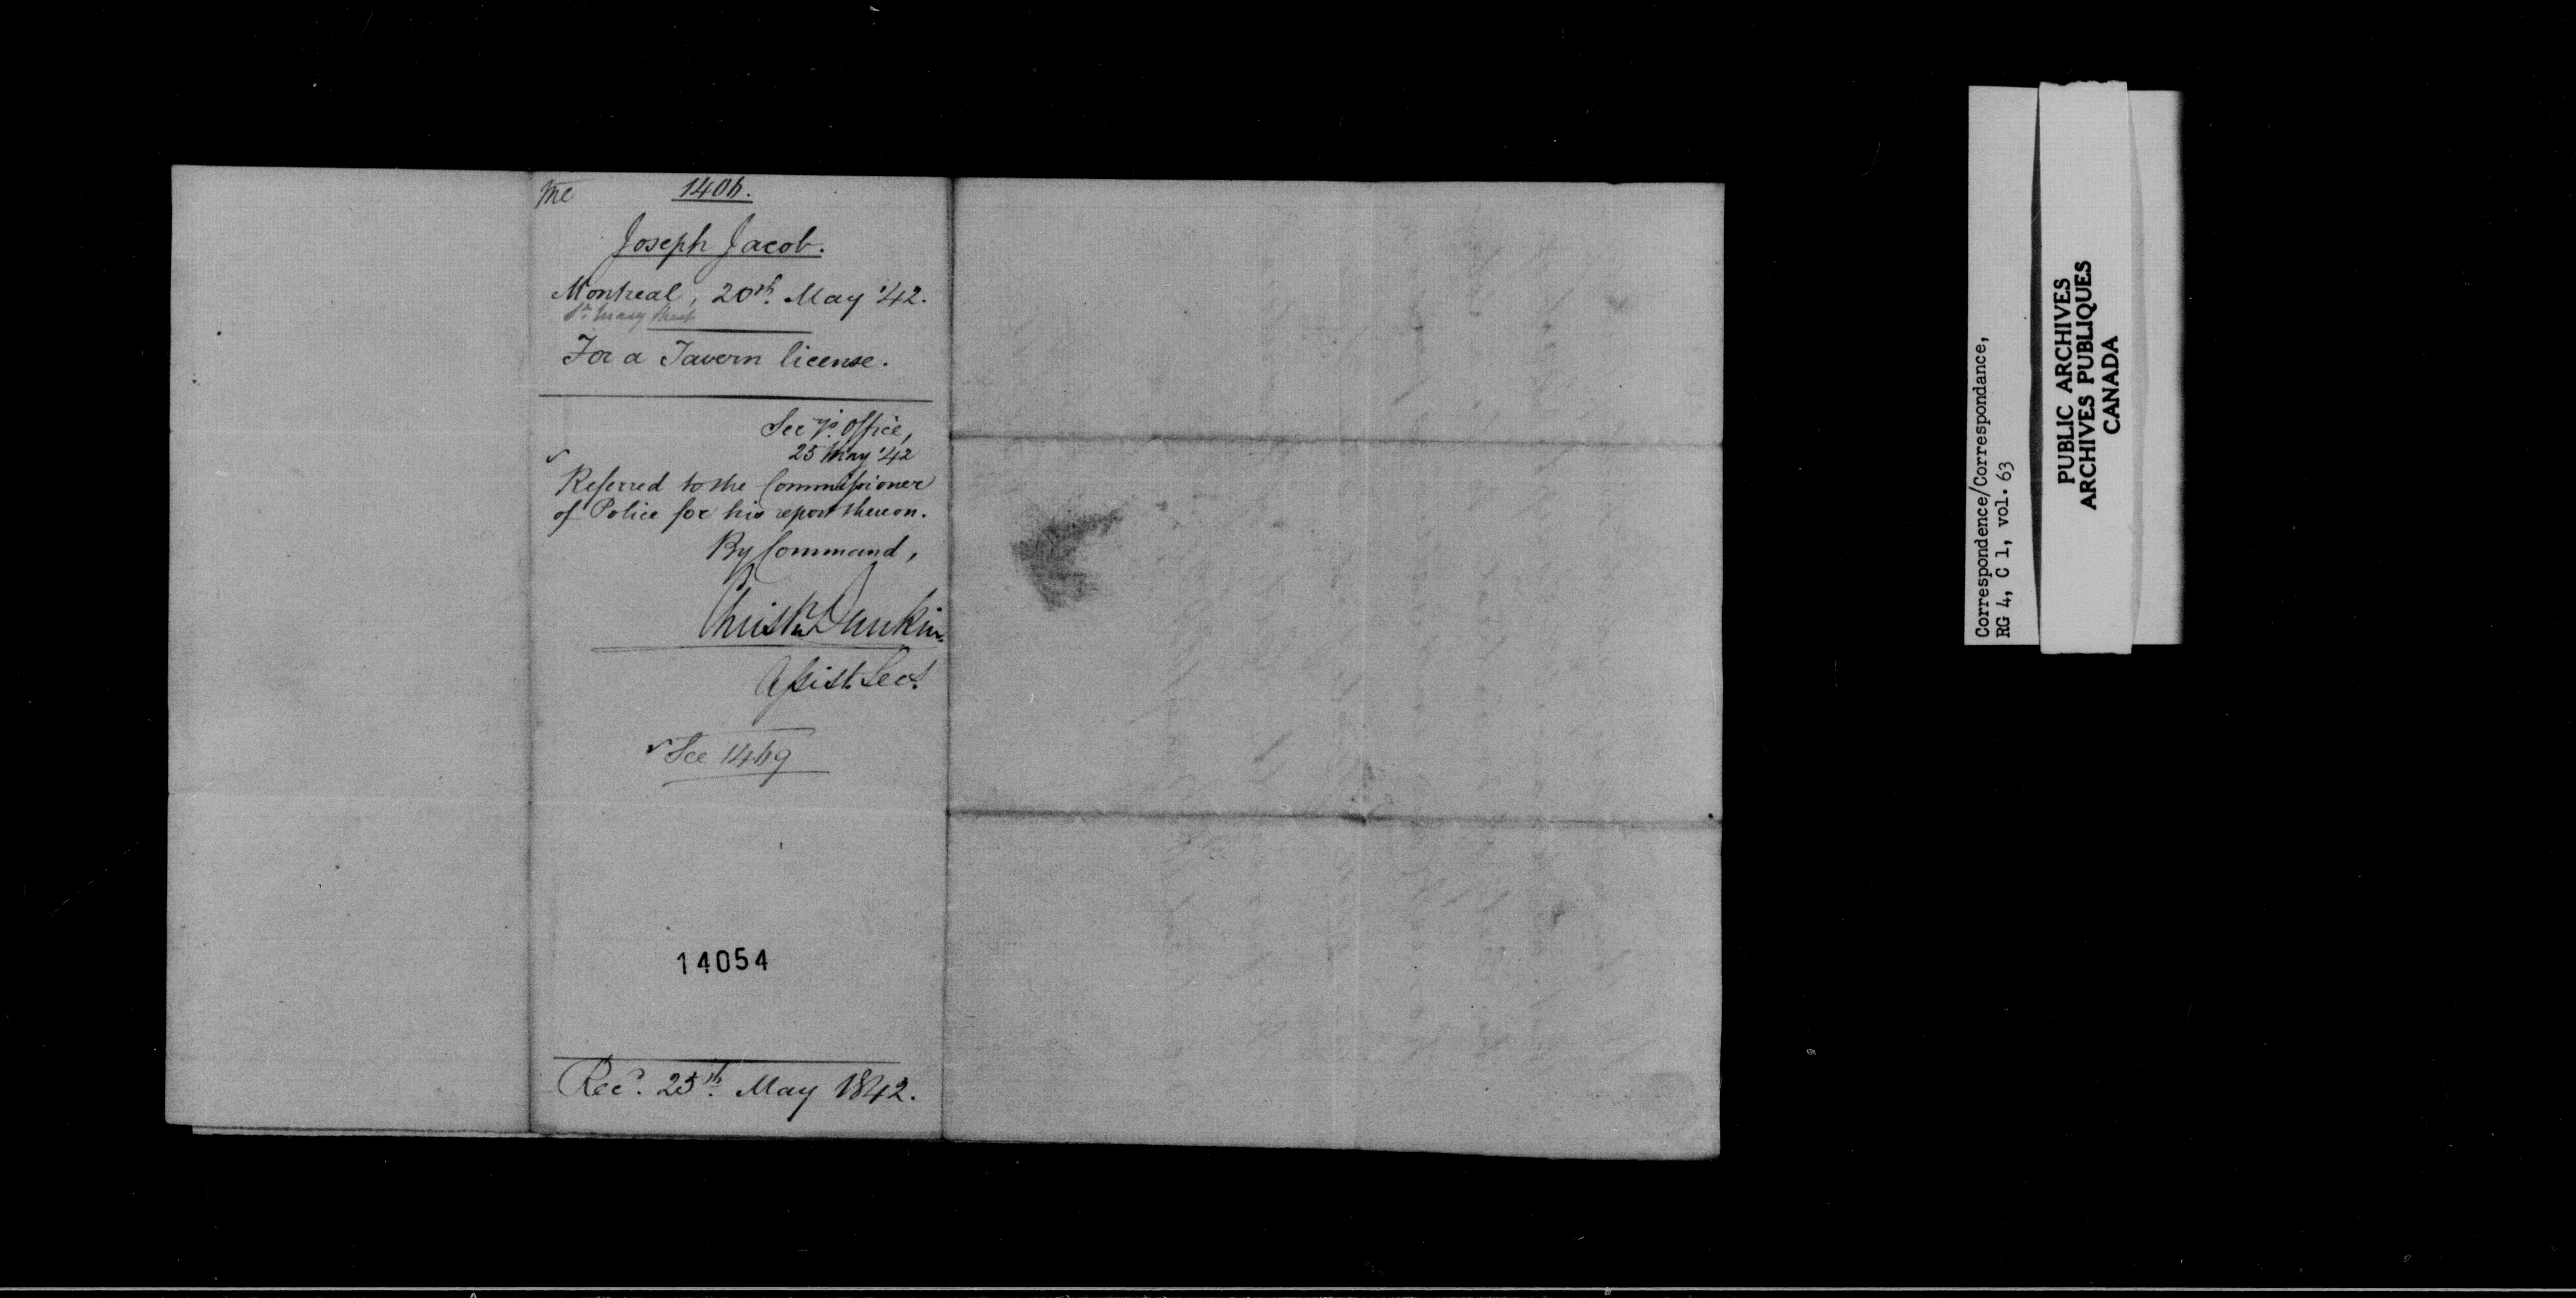 mc 1406.
Joseph Jacob.
Montreal, 20th. May '42.
St. Mary Street
For a Tavern license.
Secy's. Office,
25 May '42
Referred to the Commissioner
of Police for his report thereon.
By Command,
Christr. Dunkin
Assist. Secy.
See 1469
14054
Recd. 25th. May 1842.
Correspondence/Correspondance,
RG 4, C 1, vol. 63
PUBLIC ARCHIVES
ARCHIVES PUBLIQUES
CANADA